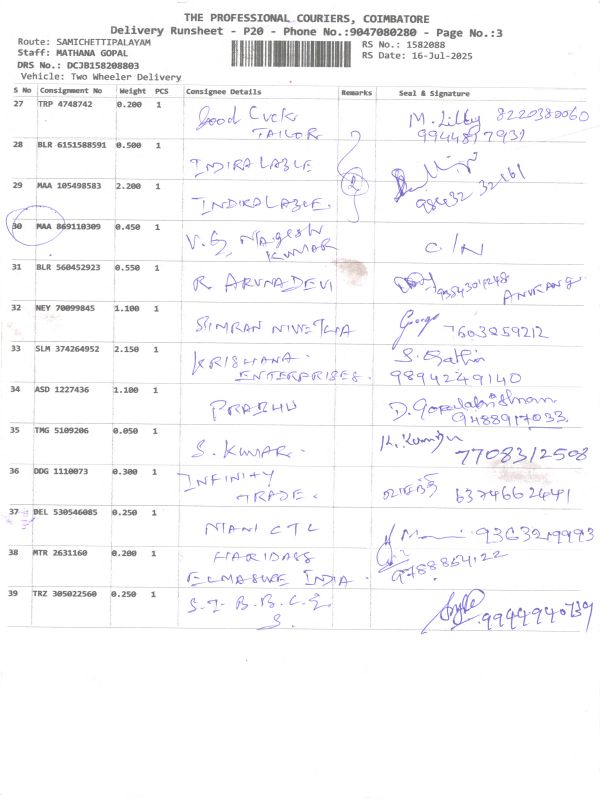 THE PROFESSIONAL COURIERS, COIMBATORE
Delivery Runsheet - P20 - Phone No.:9047080280 - Page No.:3
Route: SAMICHETTIPALAYAM RS No.: 1582088
Staff: MATHANA GOPAL RS Date: 16-Jul-2025
DRS No.: DCJB158208803
Vehicle: Two Wheeler Delivery
S No Consignment No Weight PCS Consignee Details Remarks Seal & Signature
27 TRP 4748742 0.200 1 Good Cuck M. Lilly 8220380060
TAILOR 9944817931
28 BLR 6151588591 0.500 1 INDIRALABLE
29 MAA 105498583 2.200 1 INDIRALABLE. 98432 32161
30 MAA 869110309 0.450 1 V. G. Nagesh C/N
KUMAR
31 BLR 560452923 0.550 1 R. ARUNADEVI
32 NEY 70099845 1.100 1 SIMRAN NIVETHA George 7603859212
33 SLM 374264952 2.150 1 KRISHANA S. Sathia
ENTERPRISES. 9894249140
34 ASD 1227436 1.100 1 PRABHU D. Gopalakrishnan
9488917033
35 TMG 5109206 0.050 1 S. KUMAR. K. Kumar
7708312508
36 DDG 1110073 0.300 1 INFINITY 6374662441
TRADE.
37 DEL 530546085 0.250 1 MANI CTL
38 MTR 2631160 0.200 1 HARIDASS 9788864122
INDIA.
39 TRZ 305022560 0.250 1 S. I- B. B. C. E 9944940739
S.